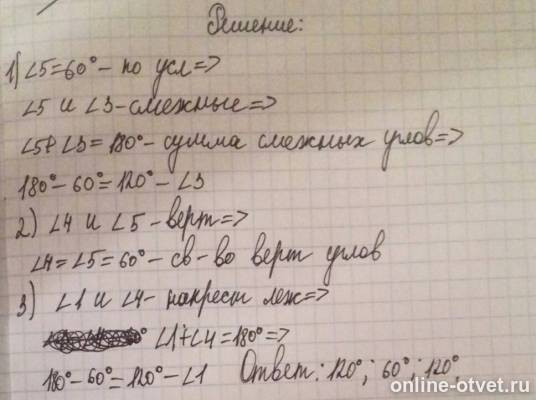 Решение:
1) ∠5=60° - по усл =>
∠5 и ∠3 - смежные =>
∠5+∠3=180° - сумма смежных углов =>
180°-60°=120° - ∠3
2) ∠4 и ∠5 - верт =>
∠4=∠5=60° - св-во верт углов
3) ∠1 и ∠4 - накрест леж =>
∠1+∠4=180° =>
180°-60°=120° - ∠1 Ответ: 120°; 60°; 120°
online-otvet.ru